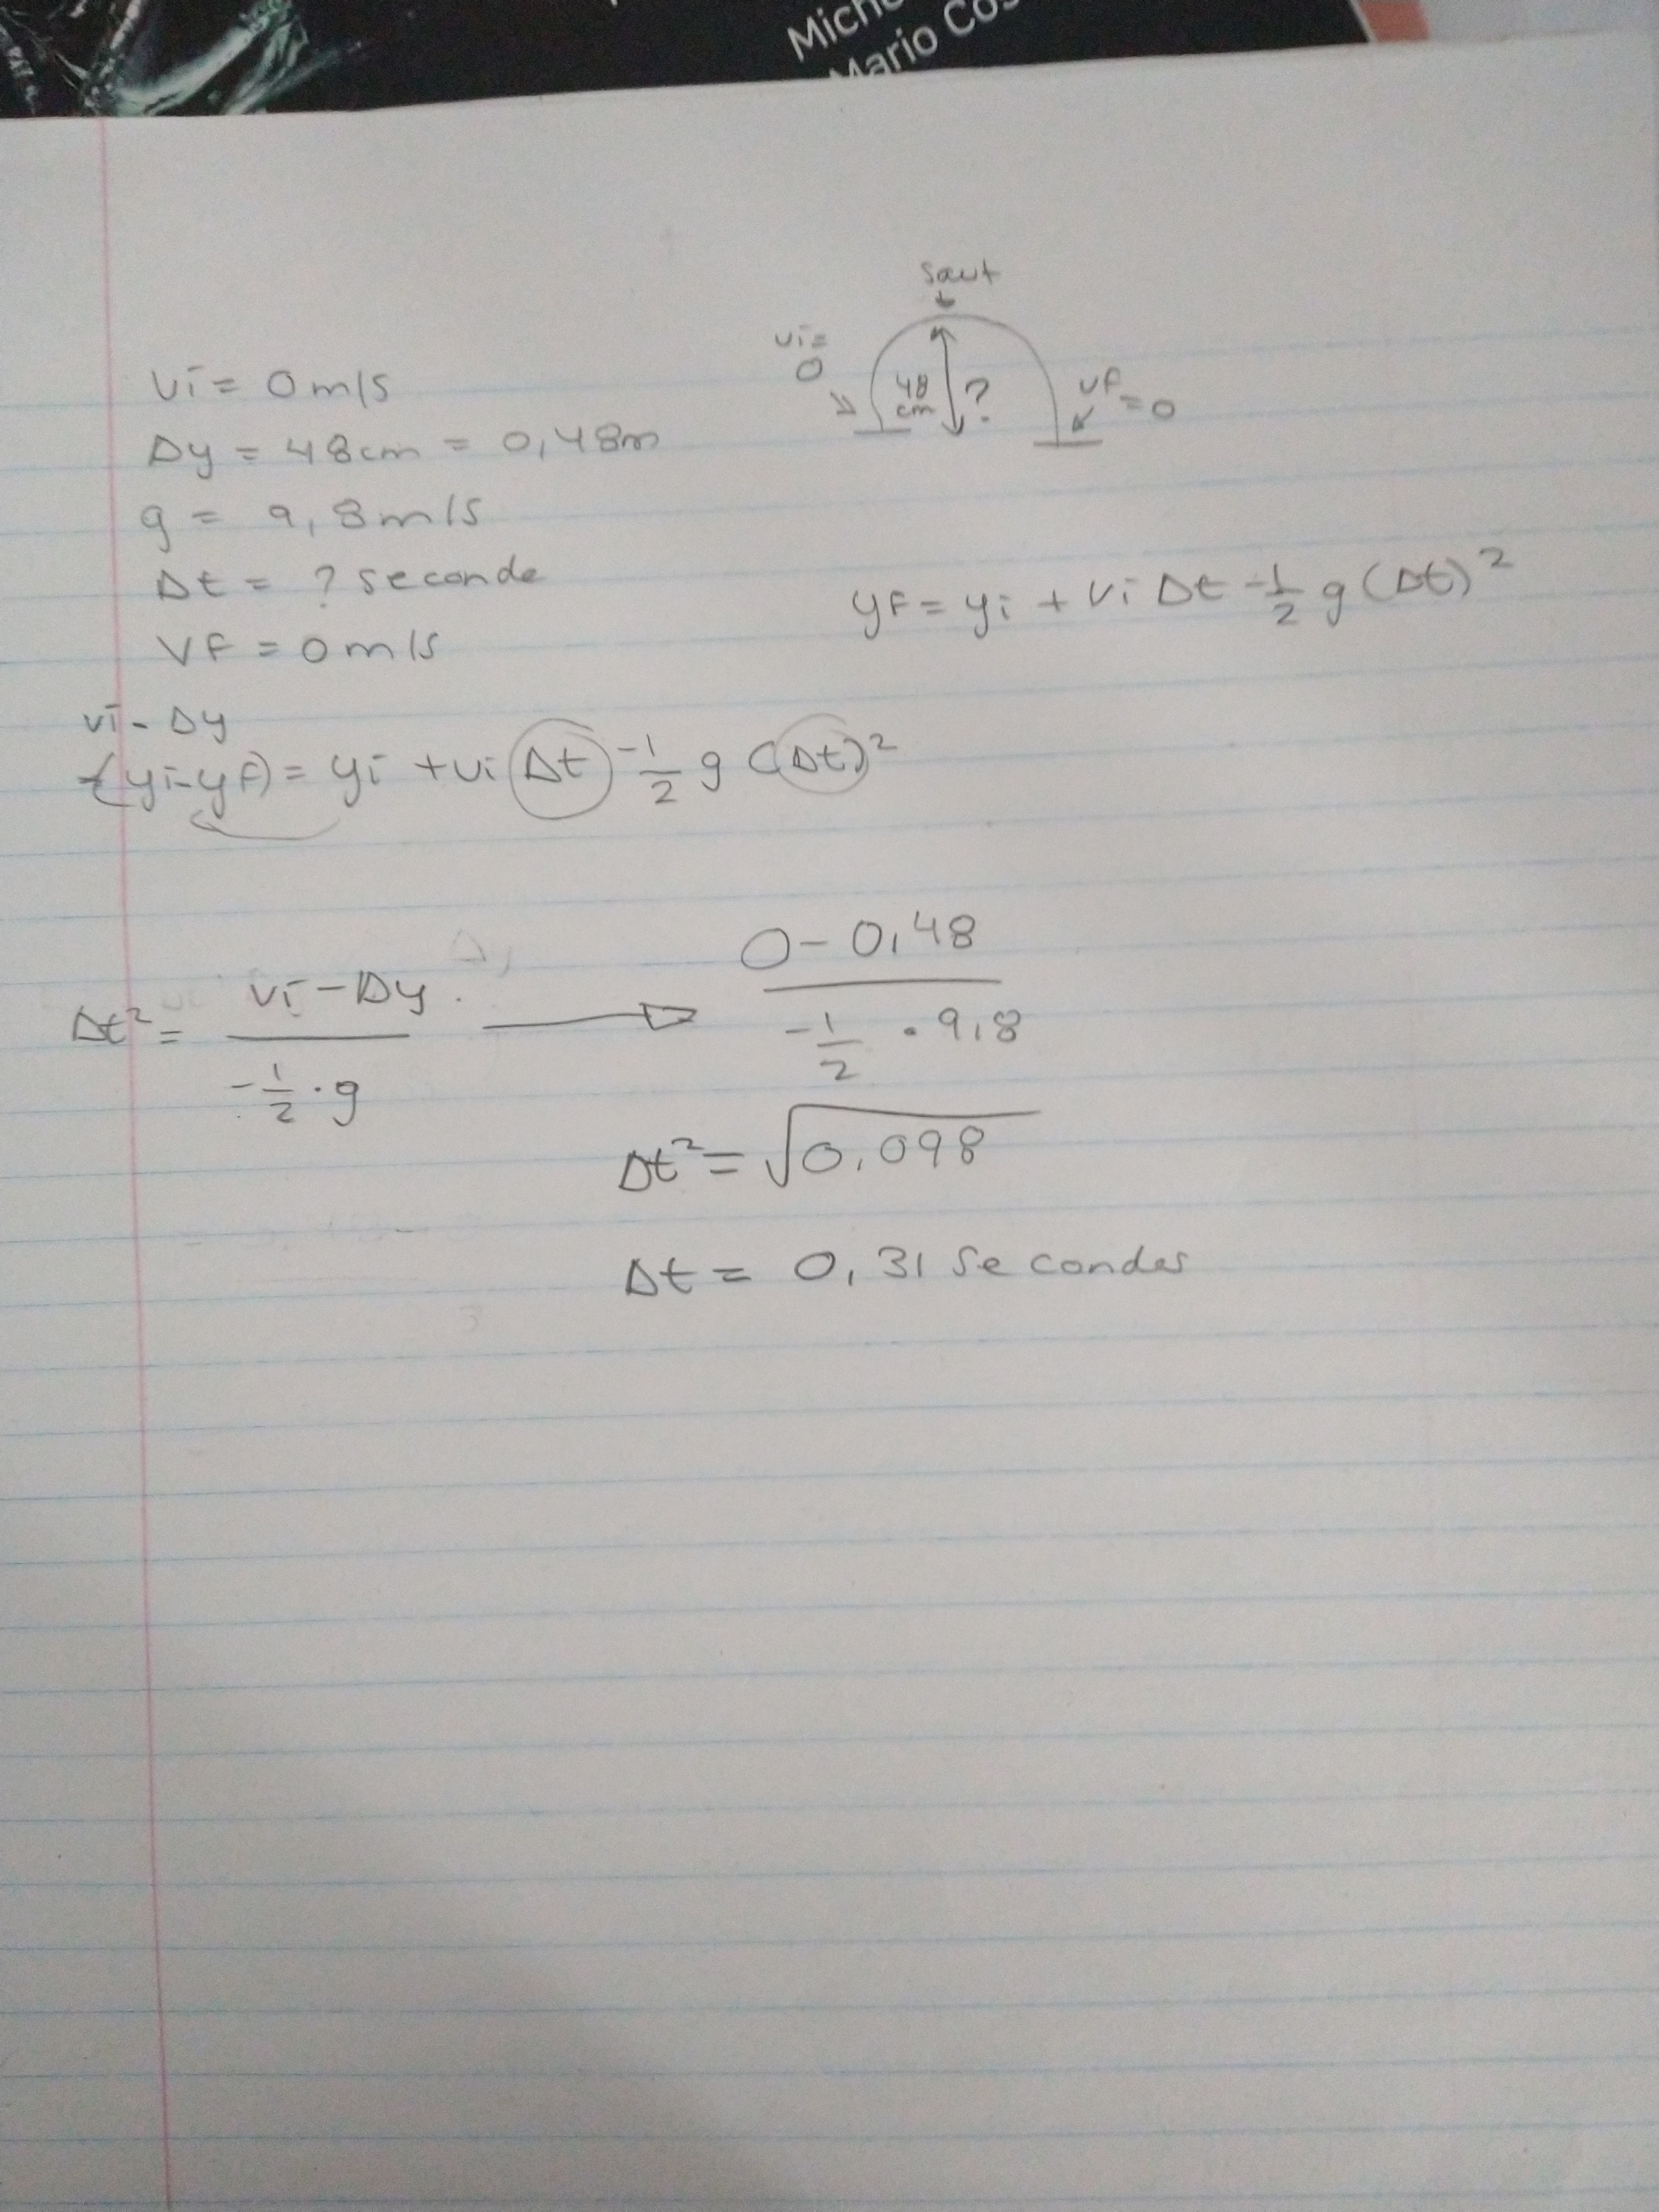 Mario Cos
saut
vi =
0
48
cm
?
vf
= 0
vi = 0 m/s
Δy = 48cm = 0,48m
g = 9,8m/s
Δt = ? seconde
VF = 0 m/s
yF = yi + vi Δt -1/2 g (Δt)²
vi - Δy
-(yi-yF) = yi + vi Δt -1/2 g (Δt)²
Δt² = vi - Δy / -1/2 · g → 0 - 0,48 / -1/2 · 9,8
Δt² = √0,098
Δt = 0,31 secondes